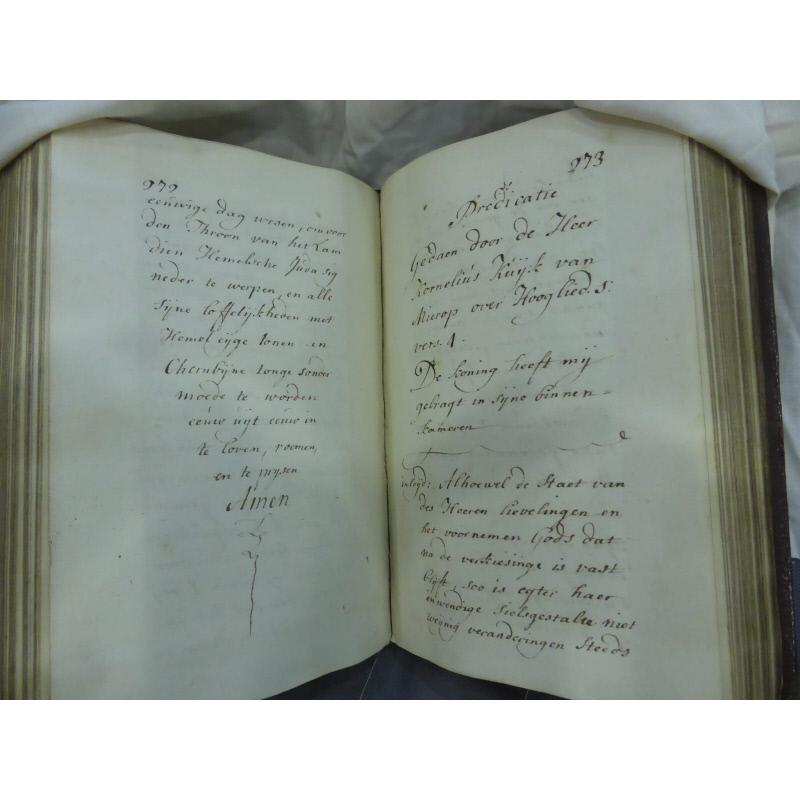 272
eeuwige dag wesen, om voor
den Throon van het Lam
dien Hemelsche Juda sig
neder te werpen, en alle
sijne loffelijkheden met
Hemel eijge tonen en
Cherubijne tonge sonder
moede te worden
eeuw uijt eeuw in
te loven, roemen,
en te prijsen
Amen
273
Predicatie
Gedaen door de Heer
Kornelius Kuijk van
Mierop over Hooglied. 1:
vers. 4.
De koning heeft mij
gebragt in sijne binnen
kameren
inlegd: Alhoewel de Staet van
des Heeren lievelingen en
het voornemen Gods dat
na de verkiesinge is vast
blijft, soo is egter haer
inwendige Sielsgestalte niet
weijnig veranderingen Steeds